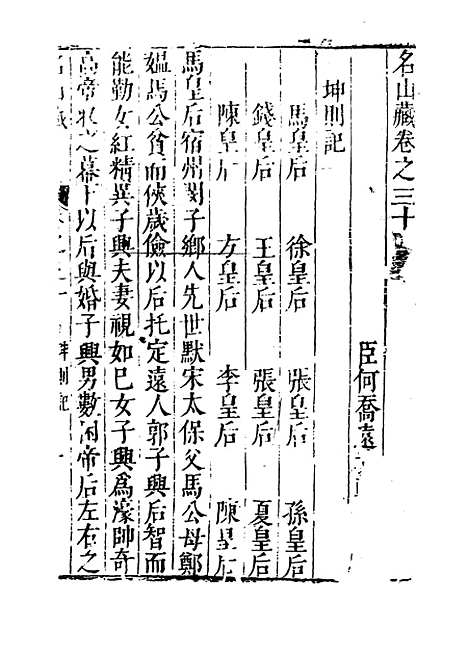 名山藏卷之三十
臣何喬遠
坤則記
馬皇后 徐皇后 張皇后 孫皇后
錢皇后 王皇后 張皇后 夏皇后
陳皇后 方皇后 李皇后 陳皇后
馬皇后宿州閔子鄉人先世默宋太保父馬公母鄭
媼馬公貧而俠歲儉以后托定遠人郭子興后智而
能勤女紅精異子興夫妻視如巳女子興爲濠帥奇
高帝狀之幕下以后與婚子興男數困帝后左右之
名山藏 坤則記 一